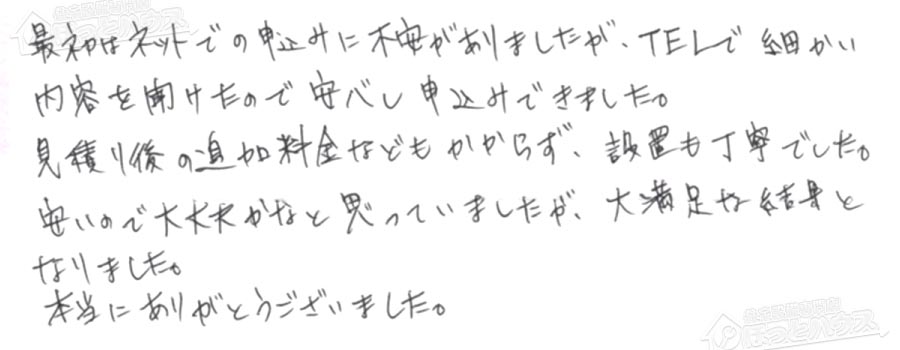 最初はネットでの申込みに不安がありましたが、TELで細かい
内容を聞けたので安心し申込みできました。
見積り後の追加料金などもかからず、設置も丁寧でした。
安いので大丈夫かなと思っていましたが、大満足な結果と
なりました。
本当にありがとうございました。
ほっとハウス
ほっとハウス